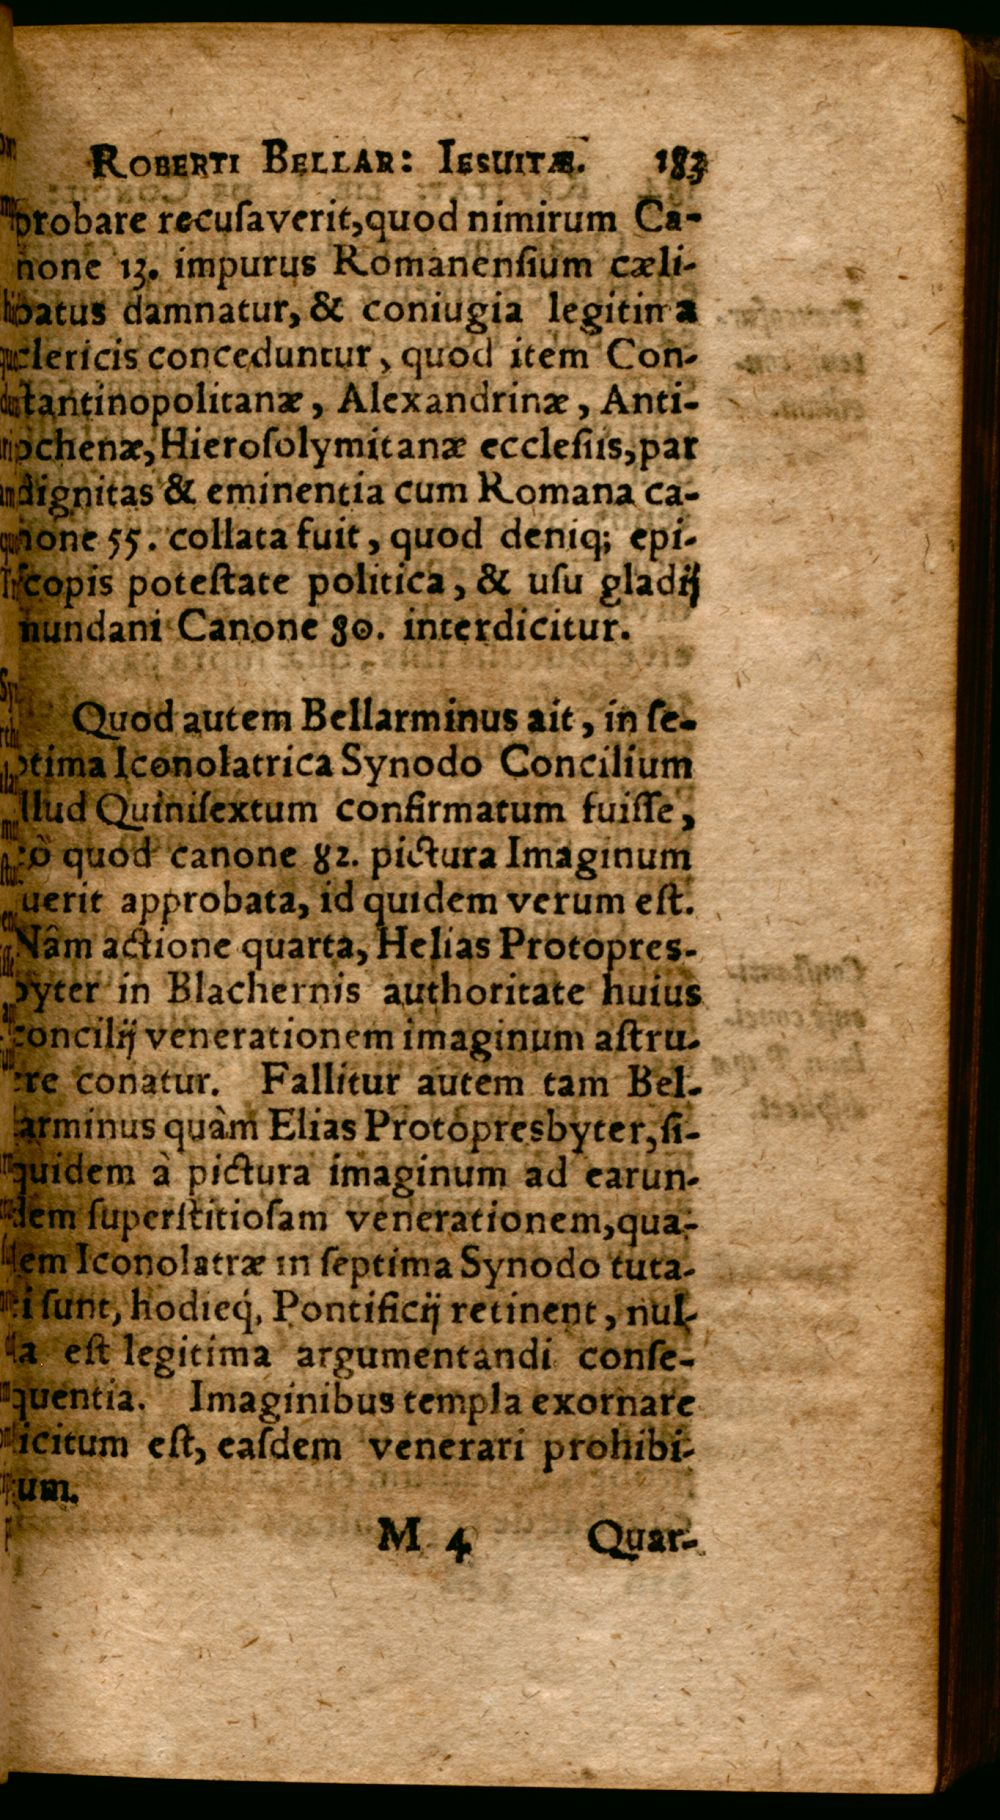 ROBERTI BELLAR: IESUITÆ. 183
probare recuſaverit,quod nimirum Ca-
none 13. impurus Romanenſium cæli-
batus damnatur, & coniugia legitima
clericis conceduntur, quod item Con-
ſtantinopolitanæ, Alexandrinæ, Anti-
ochenæ, Hieroſolymitanæ eccleſiis, par
dignitas & eminentia cum Romana ca-
none 55. collata fuit, quod deniq; epi-
ſcopis poteſtate politica, & uſu gladij
mundani Canone 80. interdicitur.
Quod autem Bellarminus ait, in ſe-
ptima Iconolatrica Synodo Concilium
illud Quiniſextum confirmatum fuiſſe,
eò quod canone 82. pictura Imaginum
fuerit approbata, id quidem verum eſt.
Nâm actione quarta, Helias Protopres-
byter in Blachernis authoritate huius
concilij venerationem imaginum aſtru-
ere conatur. Fallitur autem tam Bel-
larminus quàm Elias Protopresbyter, ſi-
quidem à pictura imaginum ad earun-
dem ſuperſtitioſam venerationem, qua-
lem Iconolatræ in ſeptima Synodo tuta-
ti ſunt, hodieq́, Pontificij retinent, nul-
la eſt legitima argumentandi conſe-
quentia. Imaginibus templa exornare
licitum eſt, eaſdem venerari prohibi-
tum.
M 4 Quar-